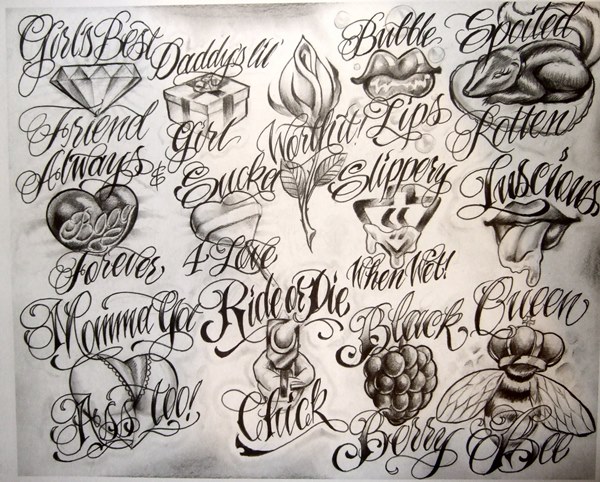 Girl's Best
Friend
Daddy's lil'
Girl
Worth it!
Bubble
Lips
Spoiled
Rotten
Always &
Forever
Sucka
4 Love
Slippery
When Wet!
Luscious
Momma Got
Ass too!
Ride or Die
Chick
Black
Berry
Queen
Bee